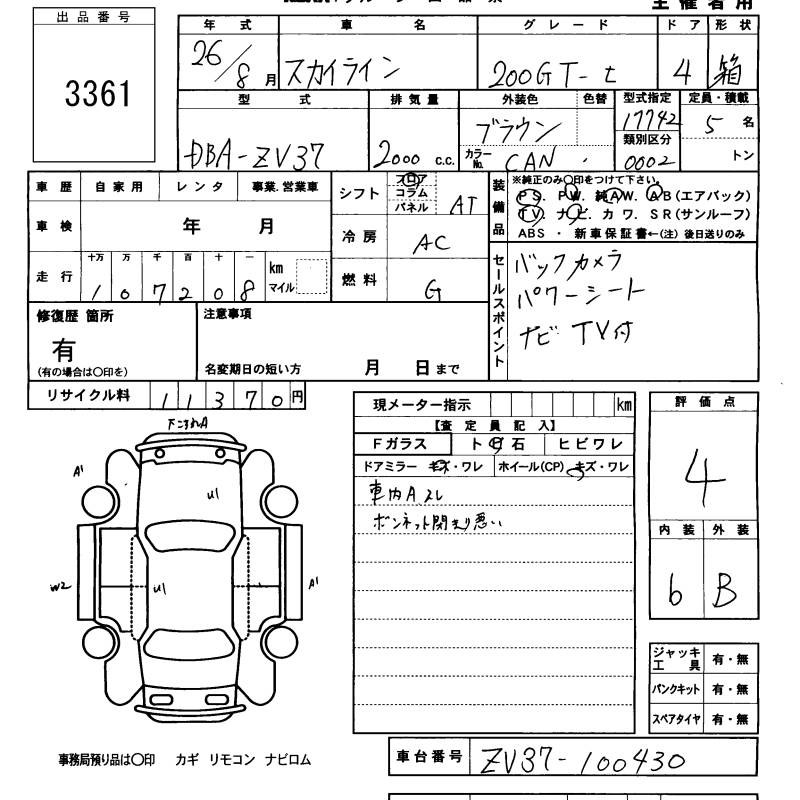 主催者用
出品番号
3361
年式 車名 グレード ドア 形状
26/8月 スカイライン 200GT-t 4 箱
型式 排気量 外装色 色替 型式指定 定員・積載
DBA-ZV37 2000 c.c. ブラウン 17742 5名
類別区分
カラーNo. CAN 0002 トン
車歴 自家用 レンタ 事業.営業車
車検 年 月
走行 十万 万 千 百 十 一 km マイル
107208
シフト フロア コラム パネル AT
冷房 AC
燃料 G
装備品
※純正のみ○印をつけて下さい。
PS. PW. 純AW. AB(エアバック)
TV. ナビ. カワ. SR(サンルーフ)
ABS ・ 新車保証書←(注) 後日送りのみ
セールスポイント
バックカメラ
パワーシート
ナビ TV付
修復歴 箇所
有
(有の場合は○印を)
注意事項
名変期日の短い方 月 日まで
リサイクル料 11370円
現メーター指示 km
【査定員記入】
Fガラス トビ石 ヒビワレ
ドアミラー キズ・ワレ ホイール(CP) キズ・ワレ
車内A ヌレ
ボンネット閉まり悪い
評価点
4
内装 外装
b B
下こすれA
A1
U1
W2
U1
A1
ジャッキ工具 有・無
パンクキット 有・無
スペアタイヤ 有・無
事務局預り品は○印 カギ リモコン ナビロム
車台番号 ZV37-100430